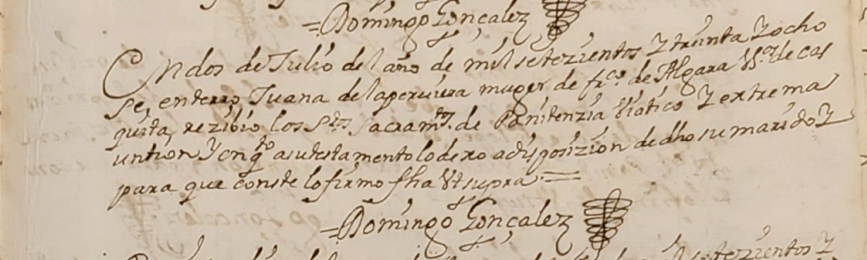 =Domingo Gonçalez
En dos de Julio del año de mil setezientos y treinta y ocho
se, enterro, Juana de la peruiera muger de frco. de Algara Vº. de cas
quita, rezibio los Stos. sacramtos. de Penitenzia Viatico y extrema
untion y en qto a su testamento lo dexo a disposizion de dho su marido y
para que conste lo firmo fha Vt supra =
=Domingo Gonçalez
setezientos y